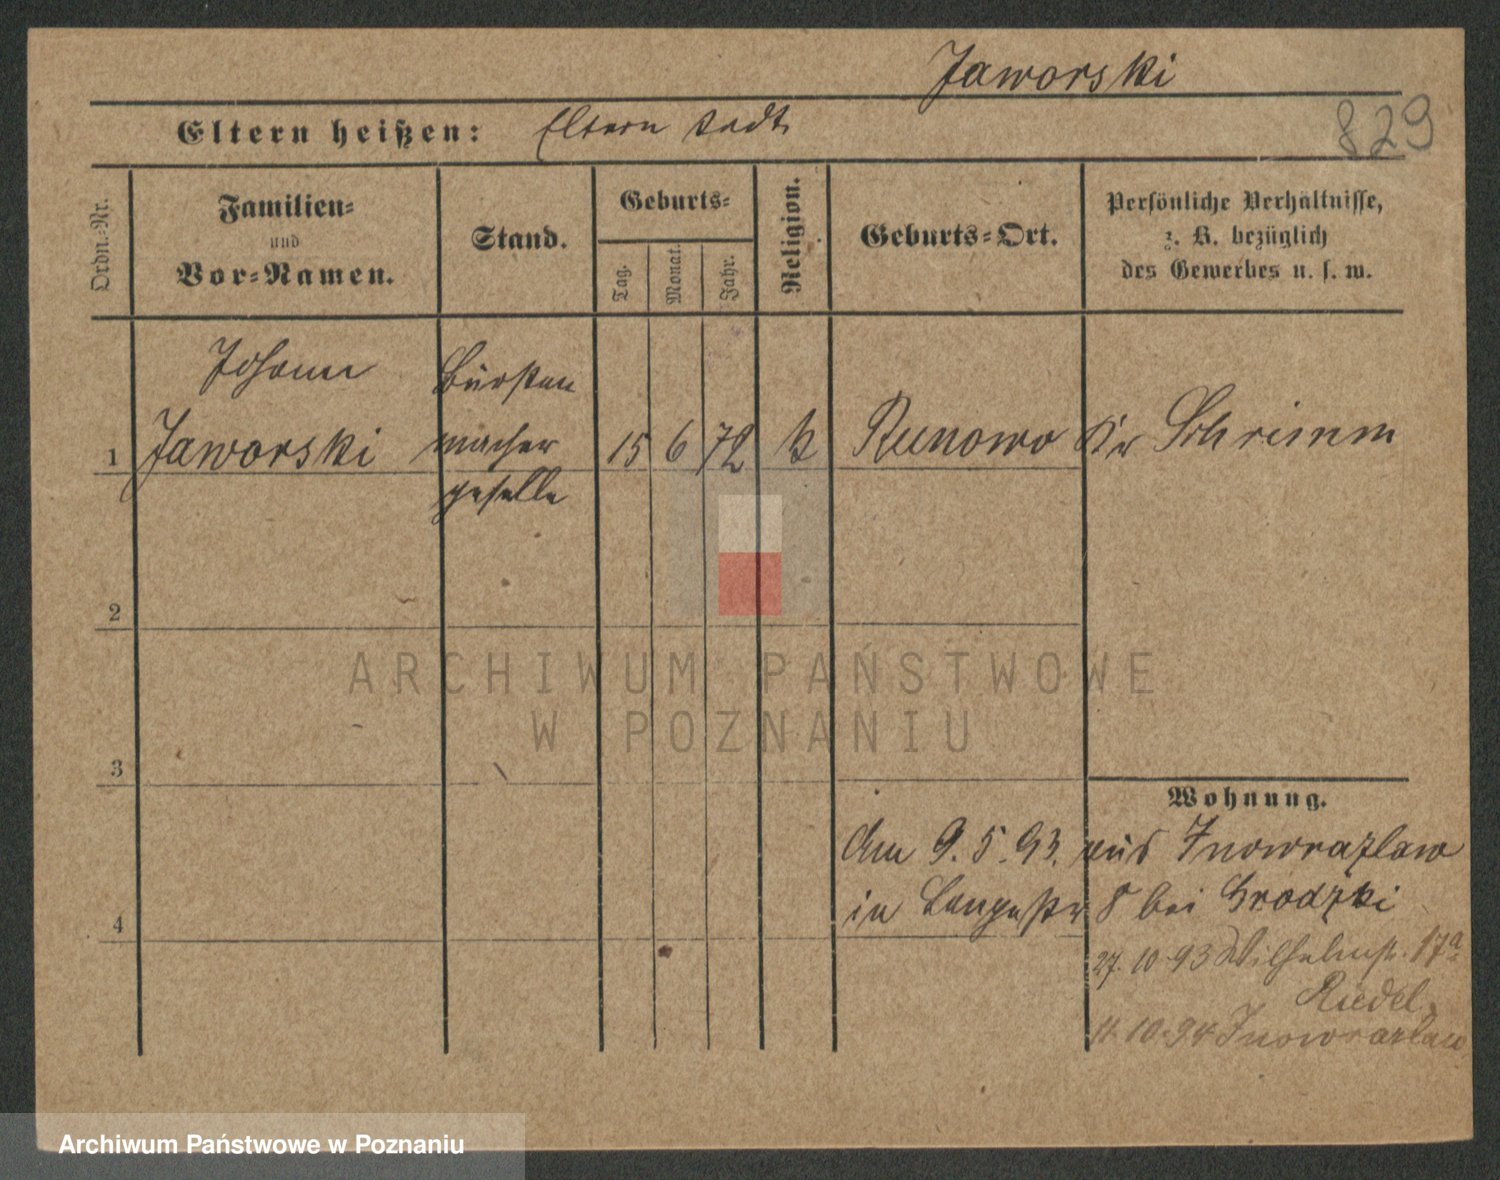 Jaworski
829
Eltern heißen: Eltern todt
Ordn.-Nr.
Familien-
und
Vor-Namen.
Stand.
Geburts-
Tag.
Monat.
Jahr.
Religion.
Geburts-Ort.
Persönliche Verhältnisse,
z. B. bezüglich
des Gewerbes u. s. w.
Johann Bürsten
1 Jaworski macher 15 6 72 k Runowo Kr Schrimm
geselle
2
3
Wohnung.
Am 9.5.93. aus Inowrazlaw
in Langestr 8 bei Grodzki
4
27.10.93 Wilhelmstr. 17a
Riedel
11.10.94 Inowrazlaw
ARCHIWUM PAŃSTWOWE
W POZNANIU
Archiwum Państwowe w Poznaniu